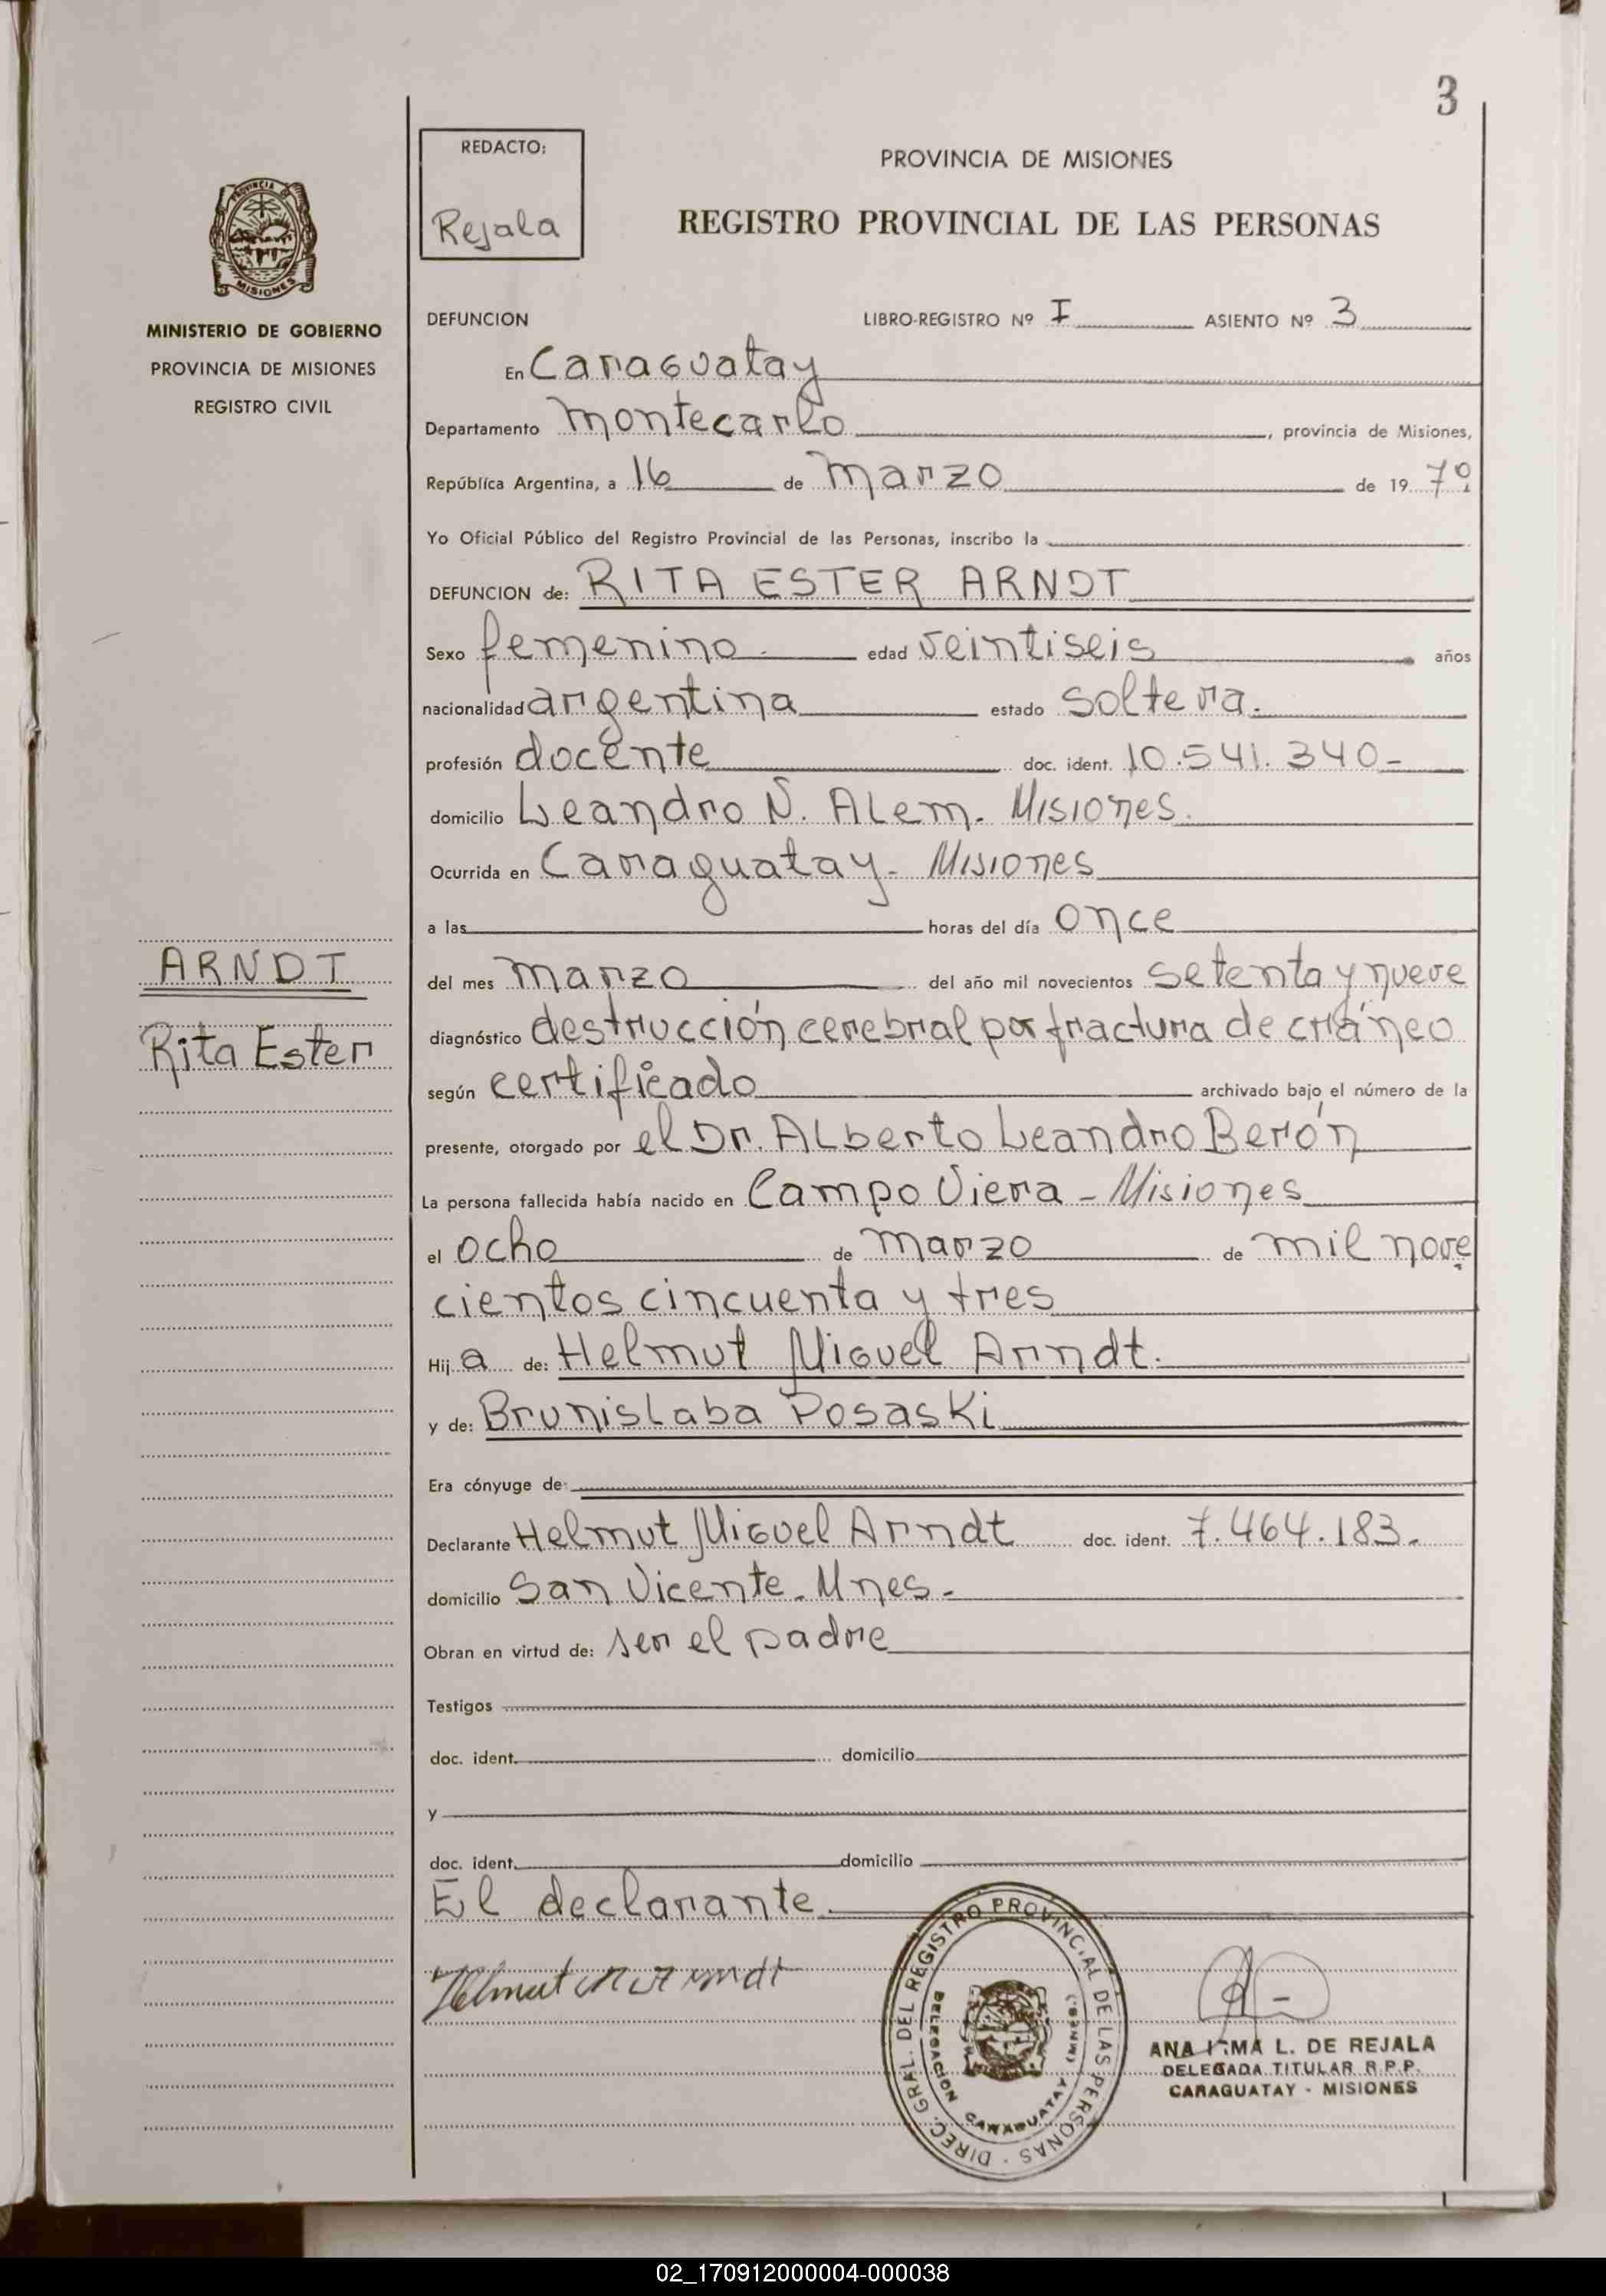 3
REDACTO:
Rejala
PROVINCIA DE MISIONES
REGISTRO PROVINCIAL DE LAS PERSONAS
PROVINCIA DE
MISIONES
MINISTERIO DE GOBIERNO
PROVINCIA DE MISIONES
REGISTRO CIVIL
DEFUNCION LIBRO-REGISTRO Nº I ASIENTO Nº 3
En Caraguatay
Departamento Montecarlo, provincia de Misiones,
República Argentina, a 16 de Marzo de 19 79
Yo Oficial Público del Registro Provincial de las Personas, inscribo la
DEFUNCION de: RITA ESTER ARNDT
Sexo femenino. edad veintiseis años
nacionalidad argentina estado soltera.
profesión docente doc. ident. 10.541.340-
domicilio Leandro N. Alem. Misiones.
Ocurrida en Caraguatay- Misiones
a las horas del día once
ARNDT
del mes marzo del año mil novecientos setenta y nueve
Rita Ester
diagnóstico destrucción cerebral por fractura de cráneo
según certificado archivado bajo el número de la
presente, otorgado por el Dr. Alberto Leandro Berón
La persona fallecida había nacido en Campo Viera - Misiones
el ocho de marzo de mil nove
cientos cincuenta y tres
Hij a de: Helmut Miguel Arndt.
y de: Brunislaba Posaski
Era cónyuge de:
Declarante Helmut Miguel Arndt doc. ident. 7.464.183.
domicilio San Vicente - Mnes.
Obran en virtud de: ser el padre
Testigos
doc. ident. domicilio
y
doc. ident. domicilio
El declarante.
DIREC. GRAL. DEL REGISTRO PROVINCIAL DE LAS PERSONAS
DELEGACION CARAGUATAY (MNES.)
ANA IRMA L. DE REJALA
DELEGADA TITULAR R.P.P.
CARAGUATAY - MISIONES
02_170912000004-000038